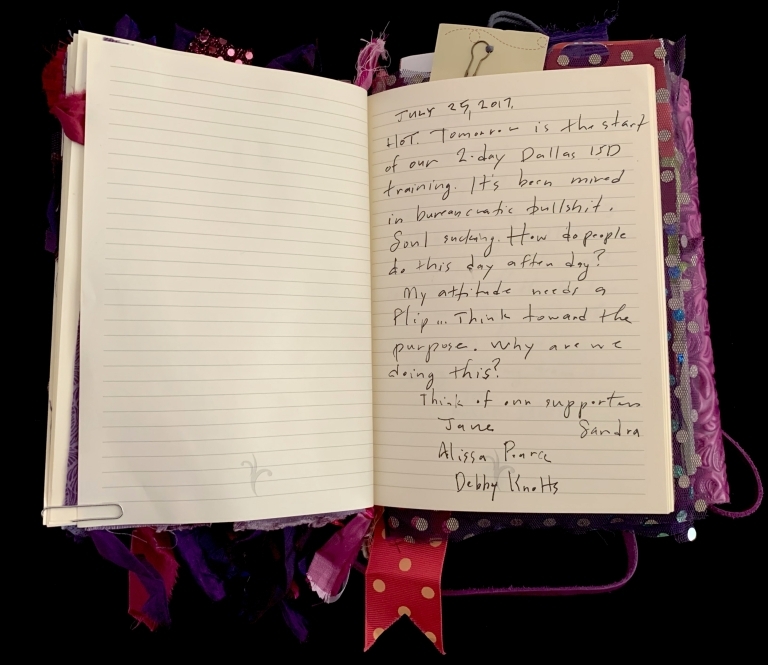 July 25, 2017.
Hot. Tomorrow is the start
of our 2-day Dallas ISD
training. It's been mired
in bureaucratic bullshit.
Soul sucking. How do people
do this day after day?
My attitude needs a
flip... Think toward the
purpose. Why are we
doing this?
Think of our supporters
Jane Sandra
Alissa Pearce
Debby Knotts